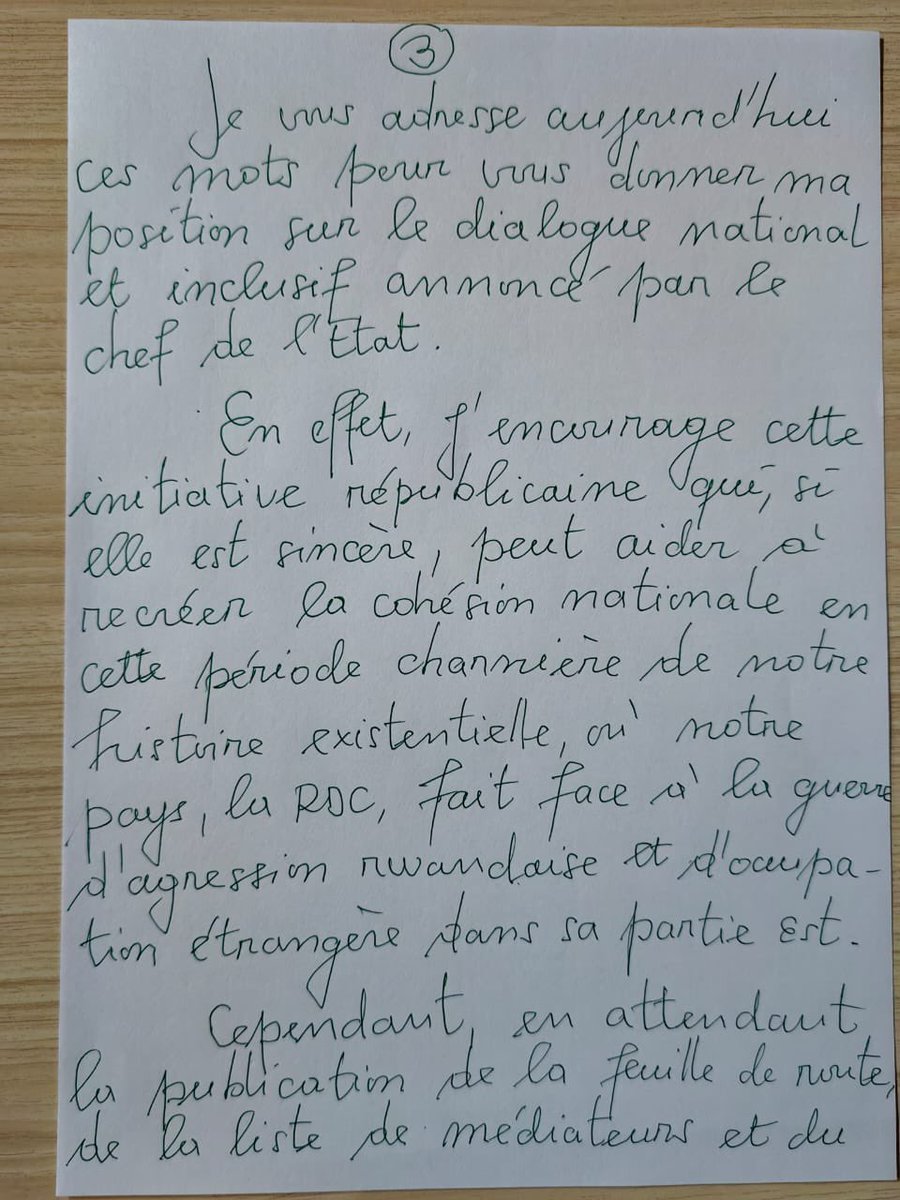 3
Je vous adresse aujourd'hui
ces mots pour vous donner ma
position sur le dialogue national
et inclusif annoncé par le
chef de l'Etat.
En effet, j'encourage cette
initiative républicaine qui, si
elle est sincère, peut aider à
recréer la cohésion nationale en
cette période charnière de notre
histoire existentielle, où notre
pays, la RDC, fait face à la guerre
d'agression rwandaise et d'occupa-
tion étrangère dans sa partie Est.
Cependant, en attendant
la publication de la feuille de route,
de la liste de médiateurs et du